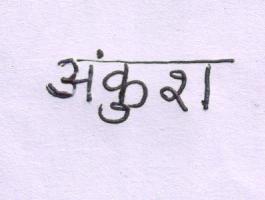 अंकुश